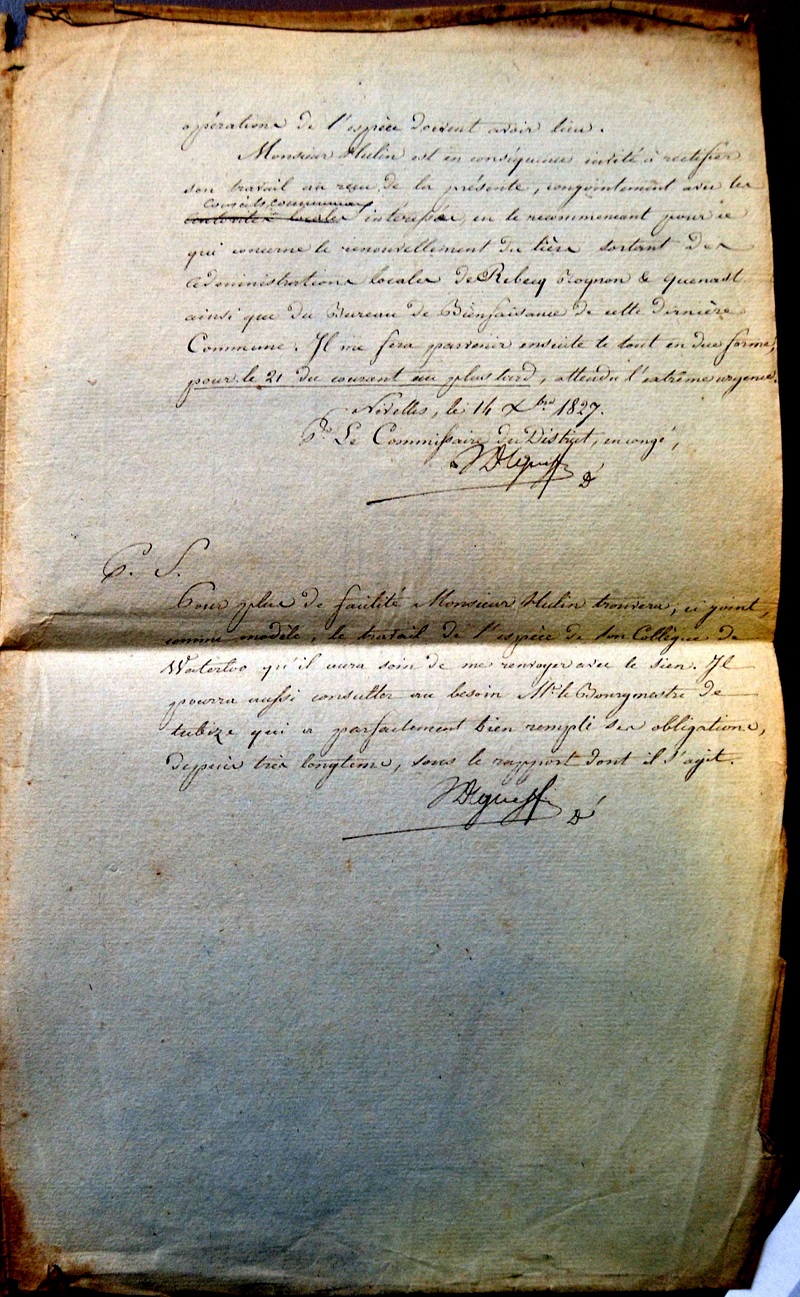 opérations de l'espèce doivent avoir lieu.
Monsieur Hulin est en conséquence invité à rectifier
son travail au reçu de la présente, conjointement avec les
conseils communaux
autorités locales intéressés, en le recommençant pour ce
qui concerne le renouvellement du tière sortant des
administrations locales de Rebecq Rognon & Quenast
ainsi que du Bureau de Bienfaisance de cette dernière
Commune. Il me fera parvenir ensuite le tout en due forme,
pour le 21 du courant au plus tard, attendu l'extrême urgence.
Nivelles, le 14 Xbre 1827.
Pr. Le Commissaire du District, en congé,
P. S.
Pour plus de facilité Monsieur Hulin trouvera, ci joint,
comme modèle, le travail de l'espèce de son Collègue de
Waterloo qu'il aura soin de me renvoyer avec le sien. Il
pourra aussi consulter au besoin Mr. le Bourgmestre de
tubize qui a parfaitement bien rempli ses obligations,
depuis très longtems, sous le rapport dont il s'agit.